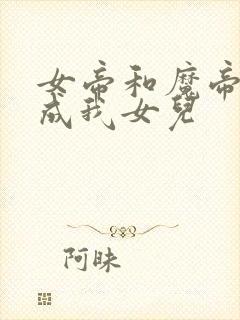 女帝和魔帝
成我女兒
阿昧